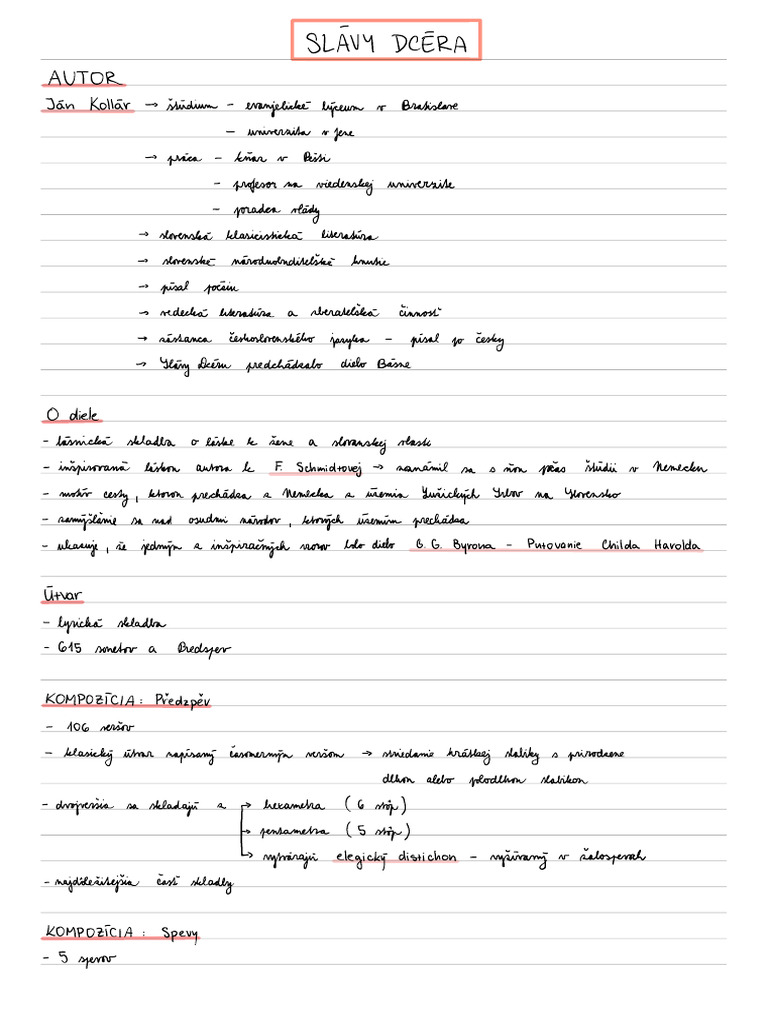 SLÁVY DCÉRA
AUTOR
Ján Kollár → štúdium – evanjelické lýceum v Bratislave
– univerzita v Jene
→ práca – kňaz v Pešti
– profesor na viedenskej univerzite
– poradca vlády
→ slovenská klasicistická literatúra
→ slovenské národnobuditeľské hnutie
→ písal poéziu
→ vedecká literatúra a zberateľská činnosť
→ zástanca československého jazyka – písal po česky
→ Slávy Dcéru predchádzalo dielo Básne
O diele
- básnická skladba o láske k žene a slovanskej vlasti
- inšpirovaná láskou autora k F. Schmidtovej → zoznámil sa s ňou počas štúdií v Nemecku
- motív cesty, ktorou prechádza z Nemecka z územia Lužických Srbov na Slovensko
- zamýšľanie sa nad osudmi národov, ktorých územím prechádza
- ukazuje, že jedným z inšpiračných vzorov bolo dielo G. G. Byrova – Putovanie Childa Harolda
Útvar
- lyrická skladba
- 615 sonetov a Predspev
KOMPOZÍCIA: Předzpěv
- 106 veršov
- klasický útvar napísaný časomerným veršom → striedanie krátkej slabiky s prirodzene
dlhou alebo polodlhou slabikou
- dvojveršia sa skladajú z → hexametra (6 stôp)
→ pentametra (5 stôp)
→ vytvárajú elegický distichon – využívaný v žalospevoch
- najdôležitejšia časť skladby
KOMPOZÍCIA: Spevy
- 5 spevov